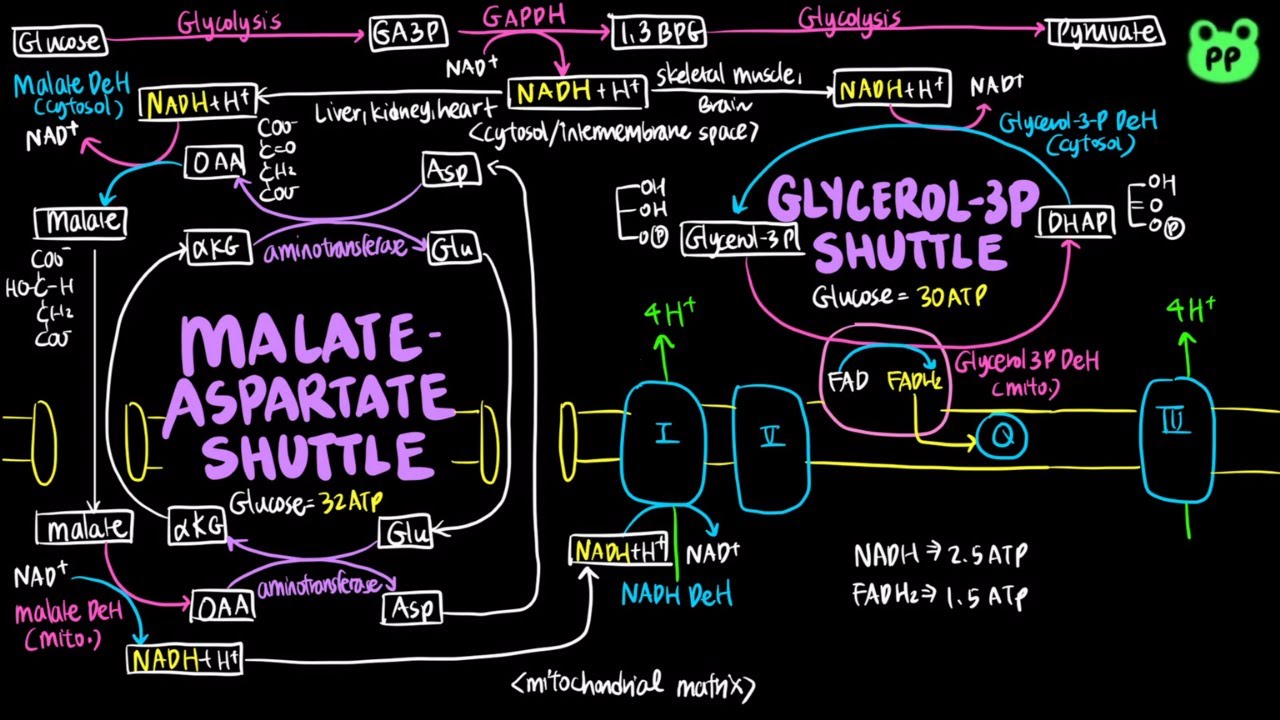 Glucose
Glycolysis
GA3P
GAPDH
1,3 BPG
Glycolysis
Pyruvate
PP
NAD⁺
Malate DeH
(cytosol)
NADH+H⁺
Liver, kidney, heart
NADH+H⁺
skeletal muscle,
Brain
NADH+H⁺
NAD⁺
<cytosol/intermembrane space>
Glycerol-3-P DeH
(cytosol)
NAD⁺
OAA
COO⁻
C=O
CH₂
COO⁻
Asp
Malate
αKG
aminotransferase
Glu
COO⁻
HO-C-H
CH₂
COO⁻
OH
OH
O P
Glycerol-3P
GLYCEROL-3P
SHUTTLE
DHAP
OH
O
O P
Glucose = 30 ATP
MALATE-
ASPARTATE
SHUTTLE
Glucose = 32 ATP
4H⁺
4H⁺
FAD
FADH₂
Glycerol 3P DeH
(mito.)
I
II
Q
III
malate
αKG
Glu
NAD⁺
malate DeH
(mito.)
OAA
aminotransferase
Asp
NADH+H⁺
NADH+H⁺
NAD⁺
NADH DeH
NADH ⇒ 2.5 ATP
FADH₂ ⇒ 1.5 ATP
<mitochondrial matrix>